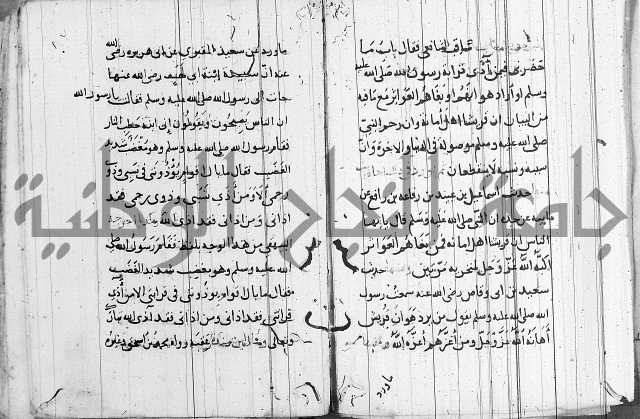 عراق الشافعي فقال باب ما
حضرني فيمن آذى قرابة رسول الله صلى الله عليه
وسلم او اراد هوانهم وبغاهم العواثر مع مافيه
من البيان ان قريشا اهل امانة وان رحم النبي
صلى الله عليه وسلم موصولة في الدنيا والاخرة وان
سببه ونسبه لا ينقطعان
حديث اسماعيل بن عبيد بن رفاعة بن رافع عن
ابيه عن جده ان النبي صلى الله عليه وسلم قال يا ايها
الناس ان قريشا اهل امانة فمن بغاهم العواثر
اكبه الله عز وجل لمنخريه مرتين حديث
سعيد بن ابي وقاص رضي الله عنه سمعت رسول
الله صلى الله عليه وسلم يقول من يرد هوان قريش
أهانه الله عز وجل ومن أعزهم أعزه الله
ماورد
ماورد عن سعيد المقبري عن ابي هريرة رضي الله
عنه ان سبيعة ابنة ابي لهب رضي الله عنها
جات الى رسول الله صلى الله عليه وسلم فقالت يا رسول الله
ان الناس يصيحون ويقولون إني ابنة حطب النار
فقام رسول الله صلى الله عليه وسلم وهو مغضب شديد
الغضب فقال ما بال اقوام يؤذونني في نسبي وذوي
رحمي ألا ومن آذى نسبي وذوي رحمي فقد
اذاني ومن اذاني فقد اذى الله
البيهقي من هذا الوجه بلفظ فقام رسول الله صلى
الله عليه وسلم وهو مغضب شديد الغضب
فقال ما بال اقوام يؤذونني في قرابتي الا من آذى
قرابتي فقد اذاني ومن اذاني فقد اذى الله تبارك
وتعالى وقال ابن منده عقبه رواه
جامعة النجاح الوطنية